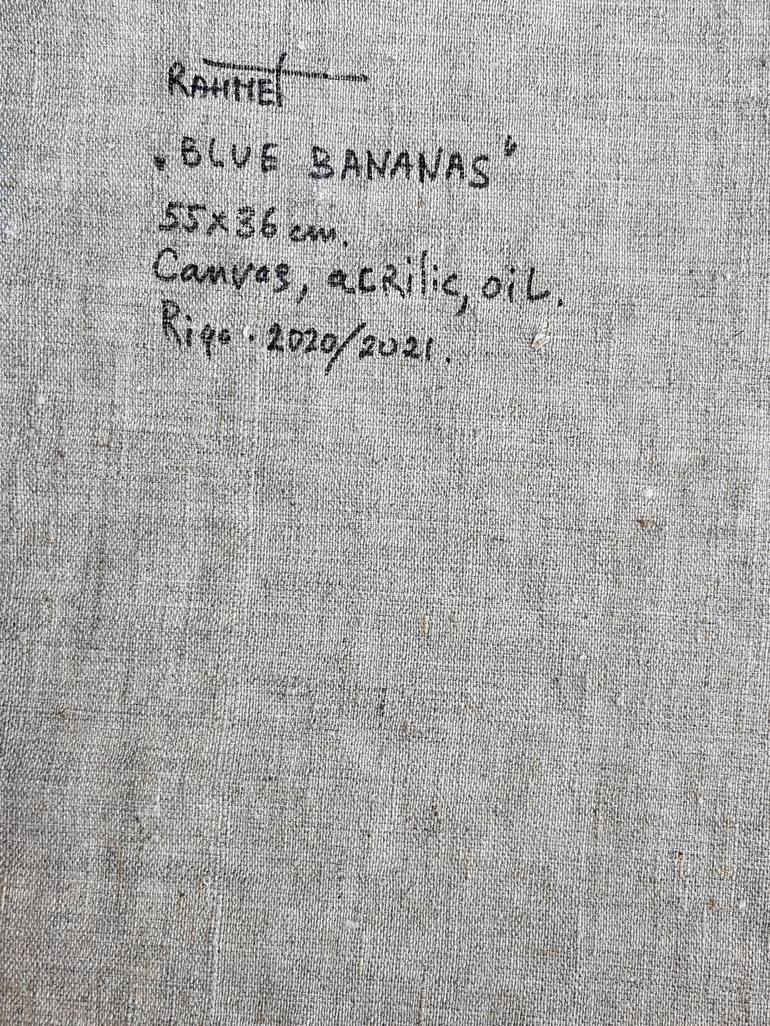 RAHMET
„BLUE BANANAS“
55x36 cm.
Canvas, acrilic, oil.
Riga. 2020/2021.